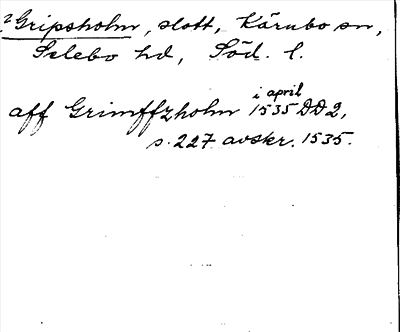 2 Gripsholm, slott, Kärnbo sn,
Selebo hd, Söd. l.
i april
aff Grimffzholm 1535 DD 2,
s. 227 avskr. 1535.